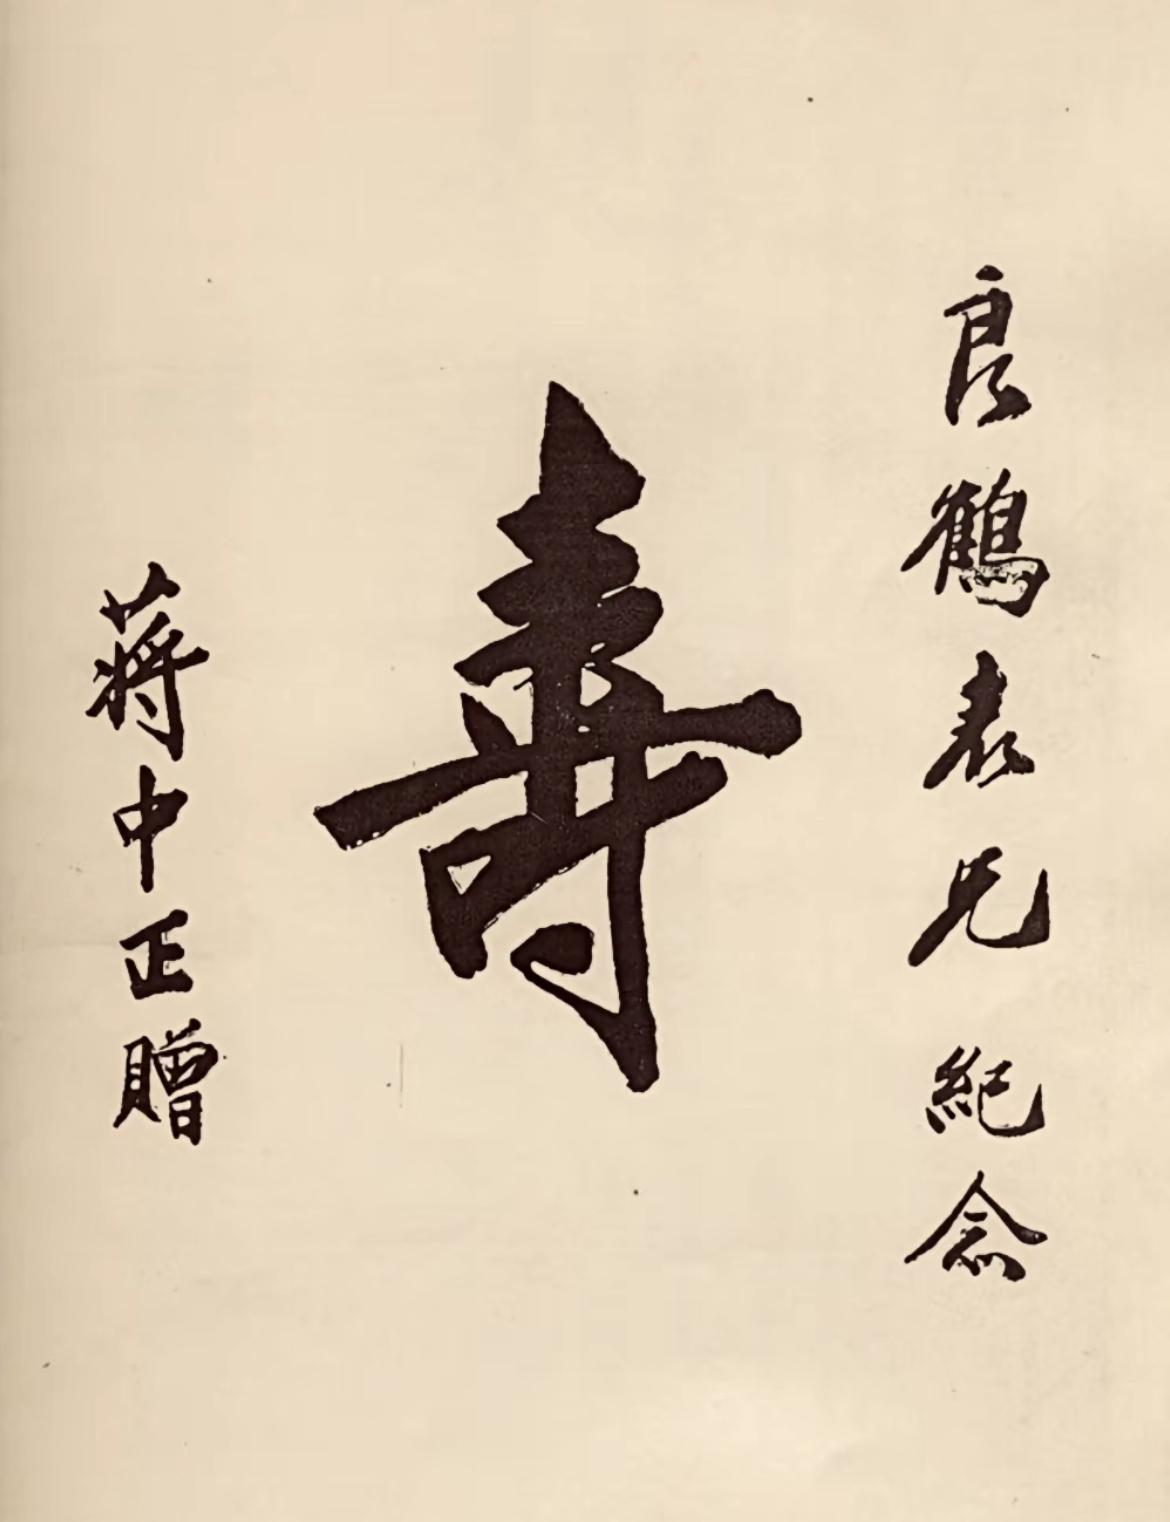 良鶴表兄紀念
壽
蔣中正贈